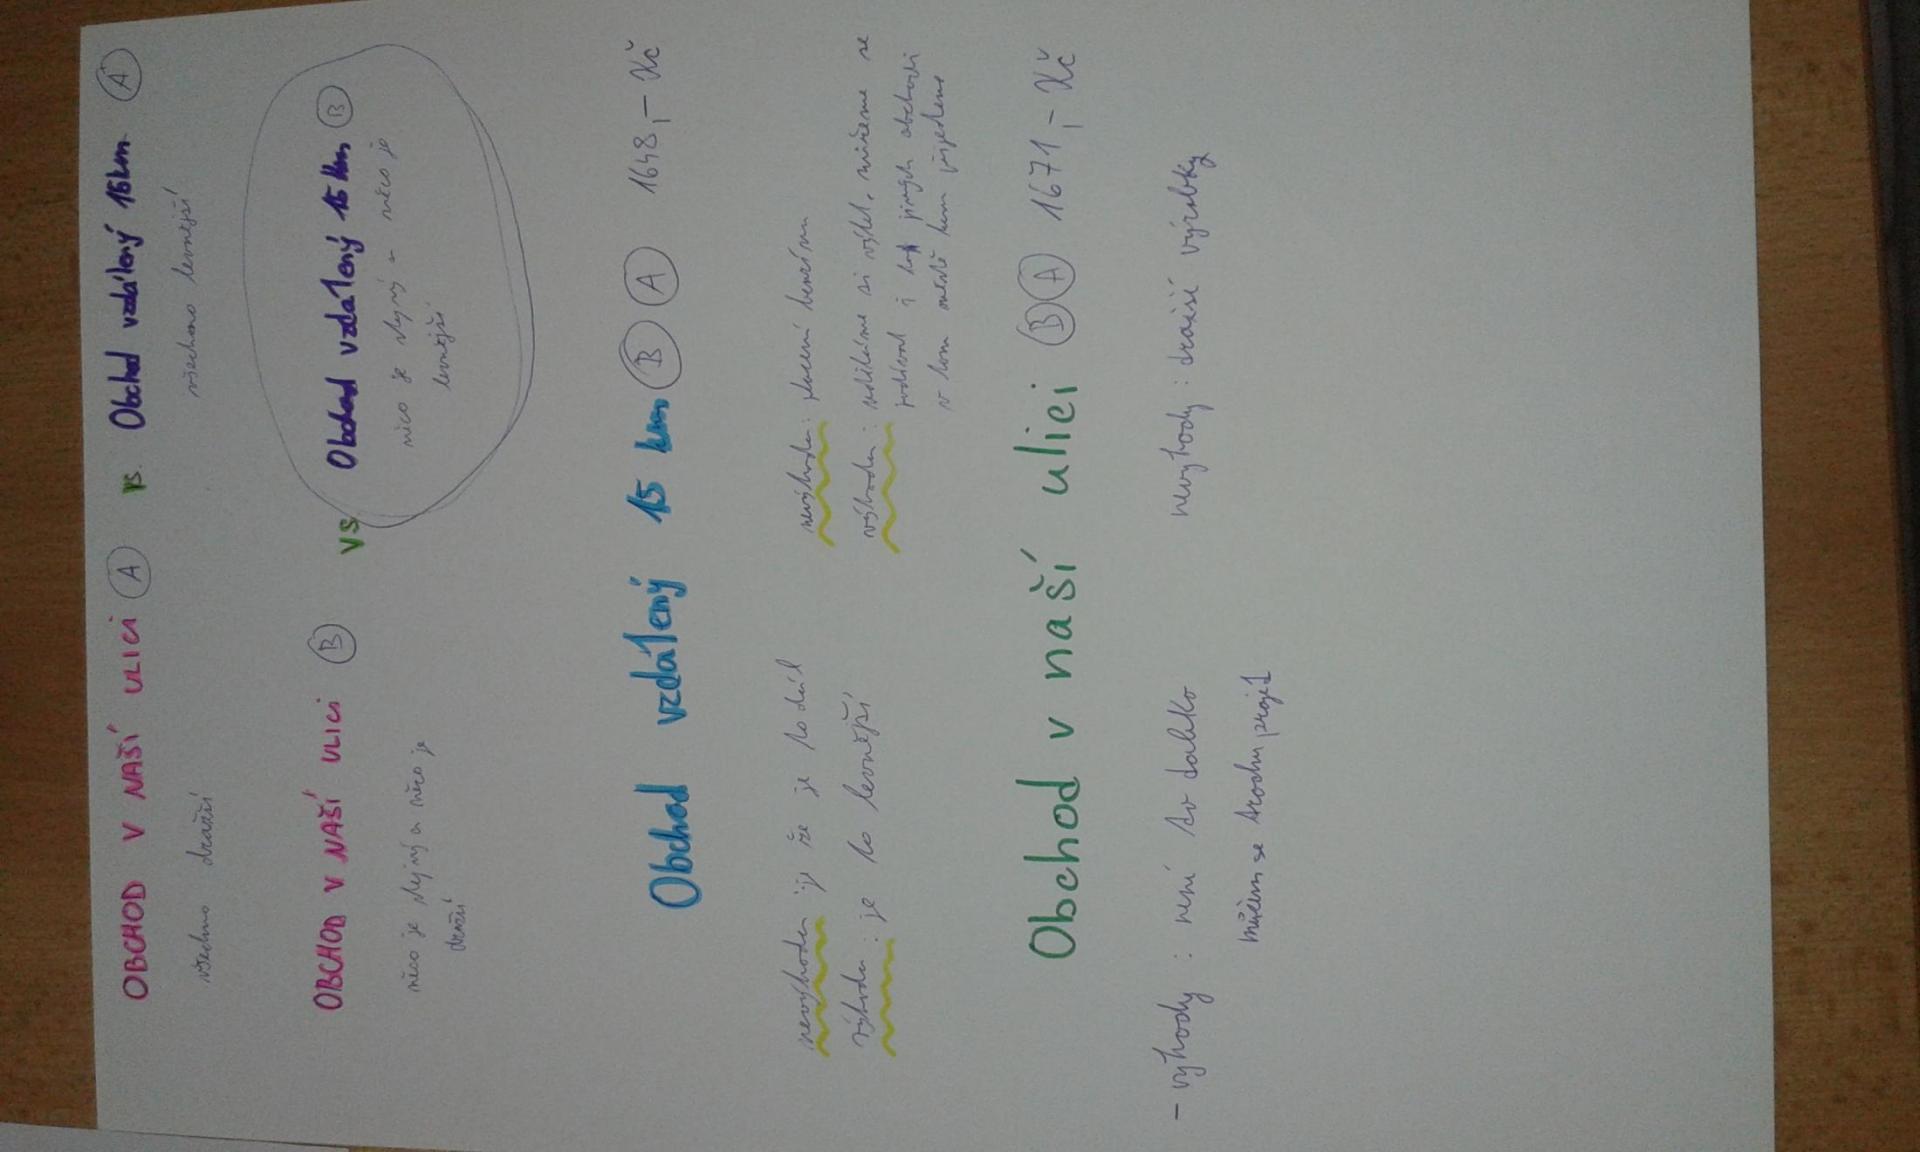 OBCHOD V NAŠÍ ULICI A vs. Obchod vzdálený 15km A
všechno dražší všechno levnější
OBCHOD V NAŠÍ ULICI B vs Obchod vzdálený 15 km B
něco je stejný a něco je něco je stejný a něco je
dražší levnější
Obchod vzdálený 15 km B A 1648,- Kč
nevýhoda: je že je to dál nevýhoda: placení benzínu
výhoda: je to levnější výhoda: uděláme si výlet, můžeme se
podívat i jiných obchodů
v tom městě kam přijedeme
Obchod v naší ulici B A 1671,- Kč
- výhody: není to daleko nevýhody: dražší výrobky
můžem se trochu projít